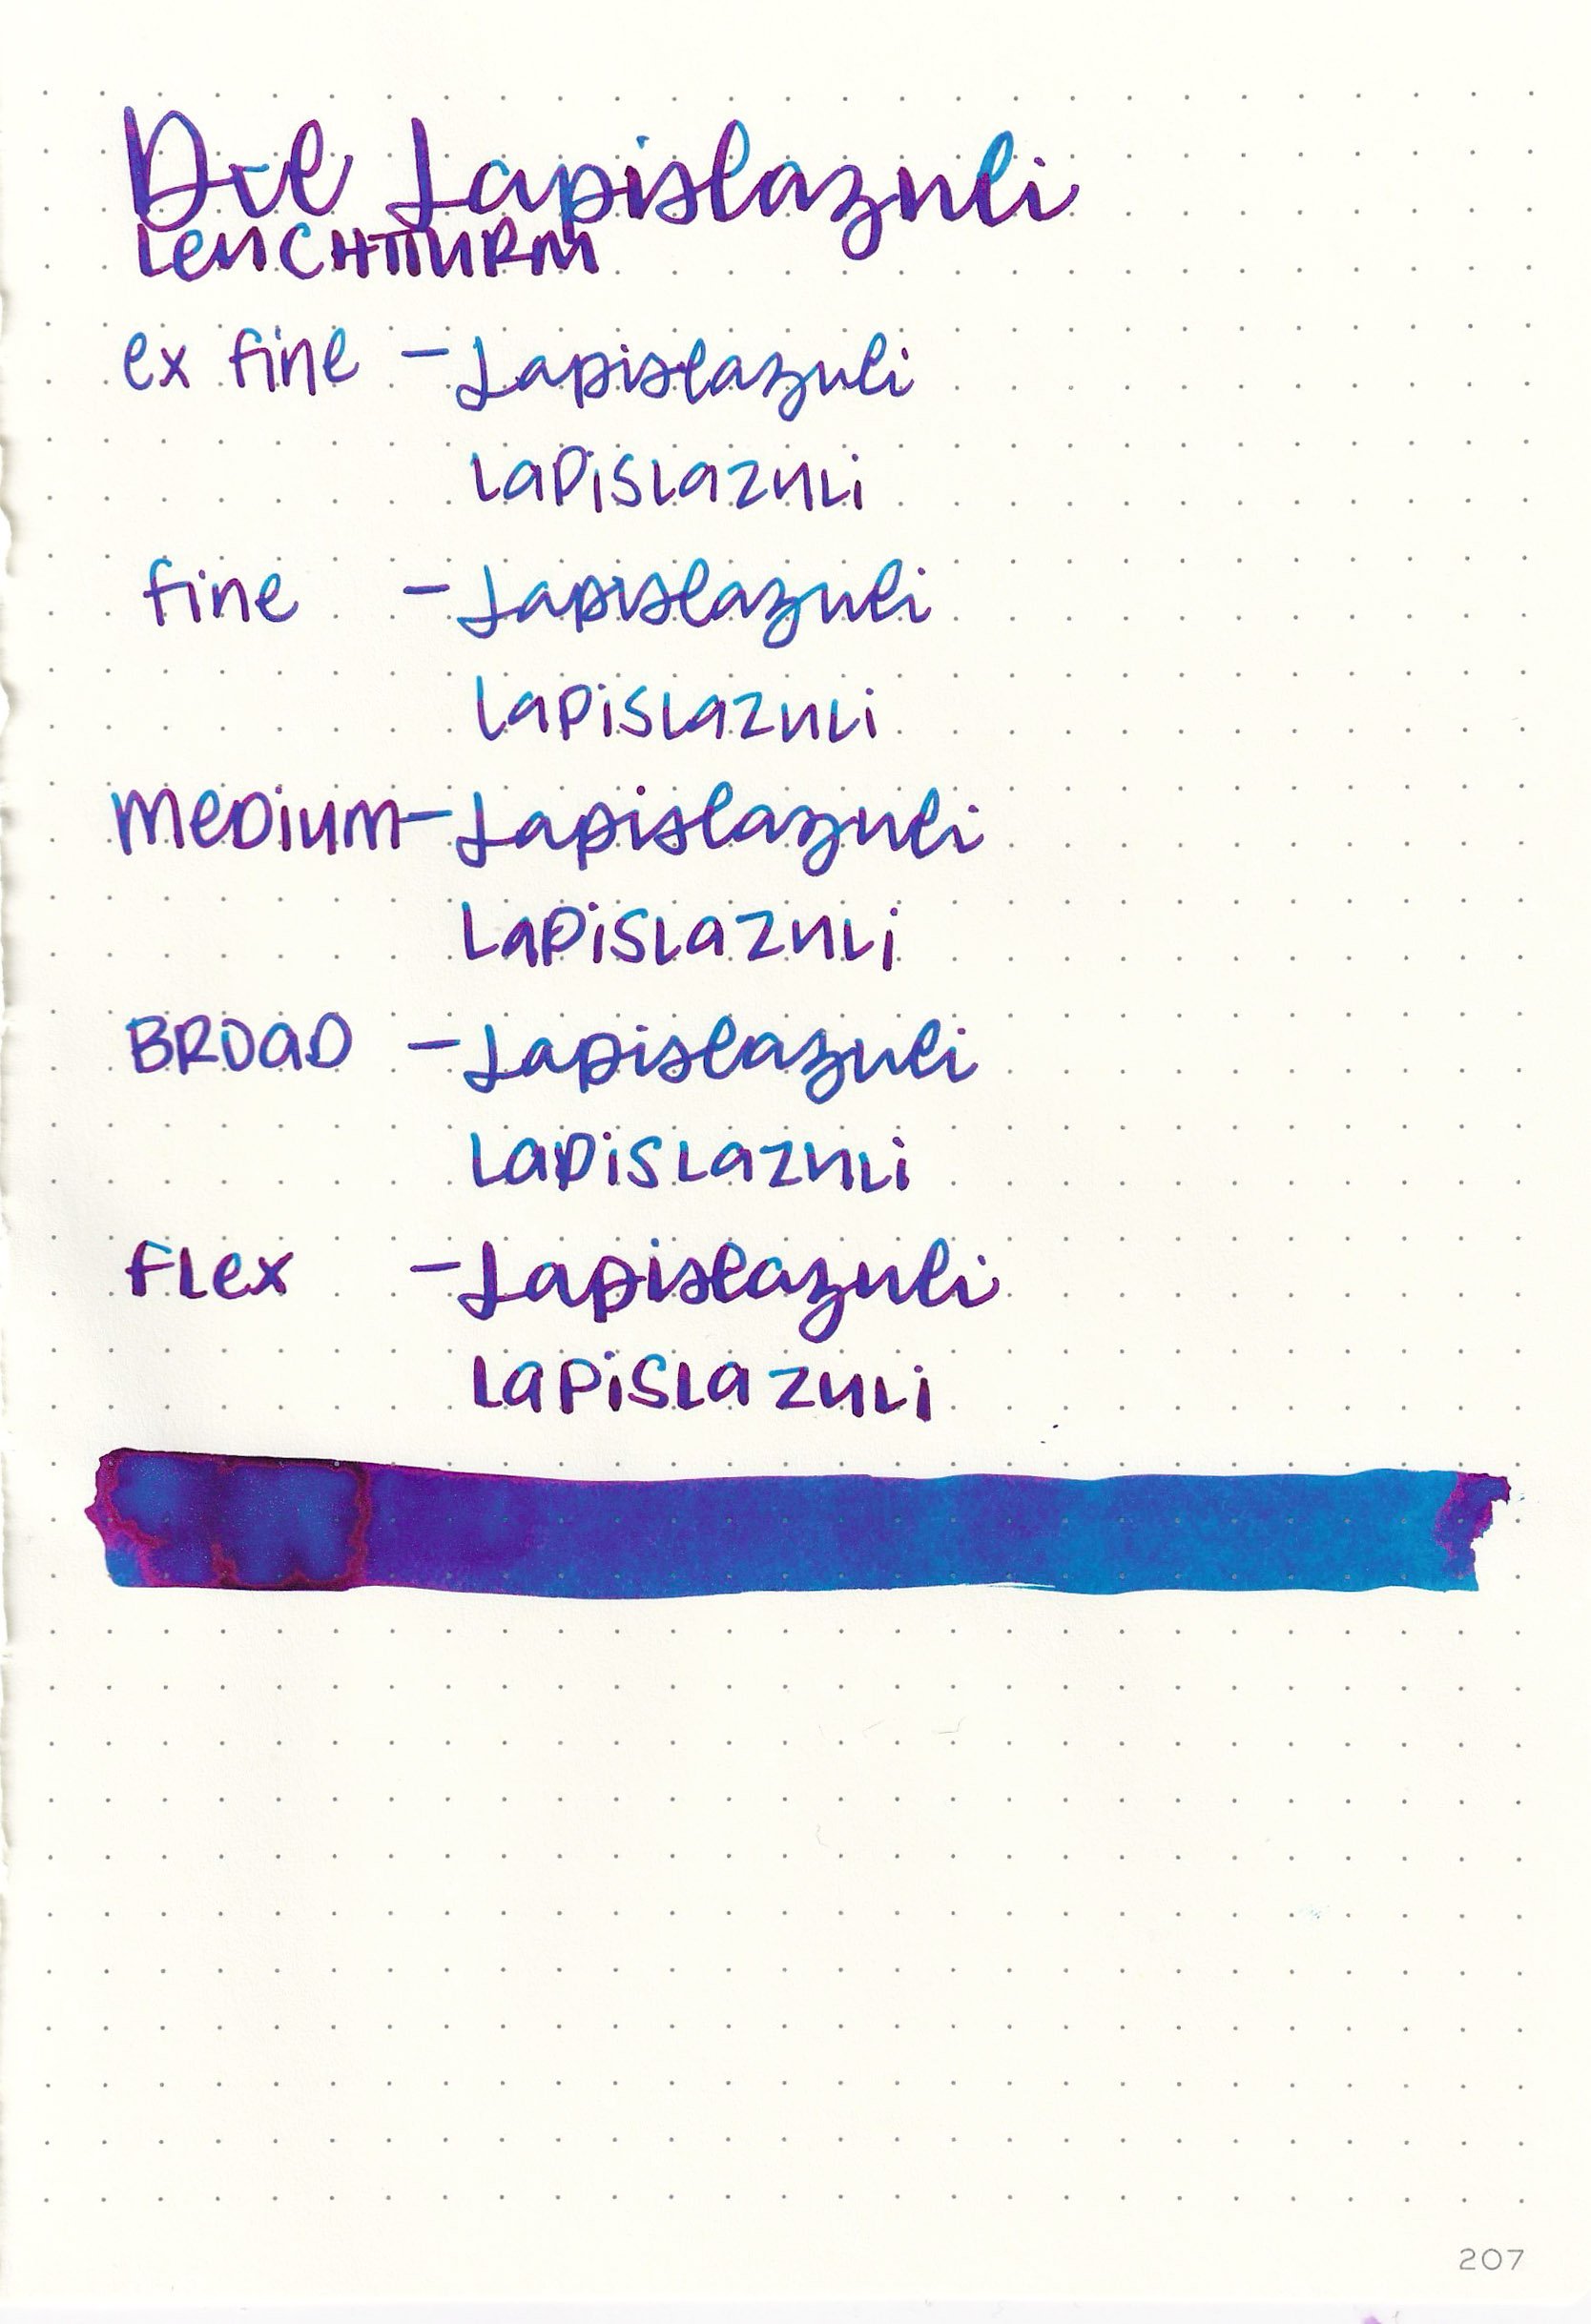 Lapislazuli
LEUCHTTURM
ex fine - Lapislazuli
LAPISLAZULI
fine - Lapislazuli
LAPISLAZULI
MEDIUM - Lapislazuli
LAPISLAZULI
BROAD - Lapislazuli
LAPISLAZULI
FLEX - Lapislazuli
LAPISLAZULI
207